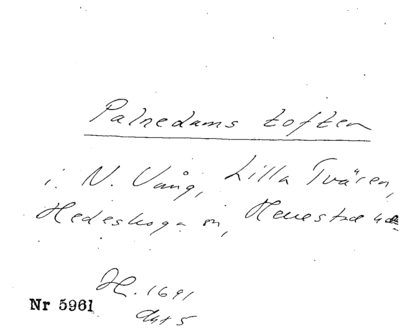 Palnedams toften
i N. Vång, Lilla Tvären,
Hedeskoga sn, Herrestad hd
H. 1691
Akt 5
Nr 5961